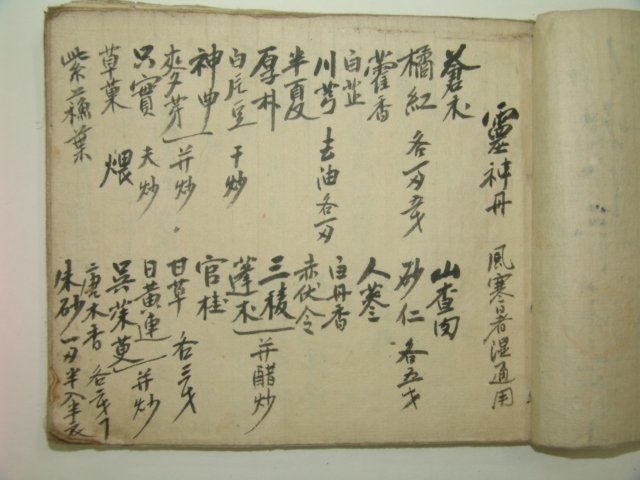 靈神丹 風寒暑湿通用
蒼朮
橘紅 各一刃五戔
藿香
白芷
川芎 去油各一刃
半夏
厚朴
白片豆 干炒
神曲
麥芽 并炒
只實 夫炒
草菓 煨
紫蘇葉
山查肉
砂仁 各五戔
人蔘
白丹香
赤伏令
三稜 并醋炒
蓬朮
官桂
甘草 各三戔
日黃連 并炒
吳茱萸
唐木香 各二戔
朱砂 一刃半入半衣